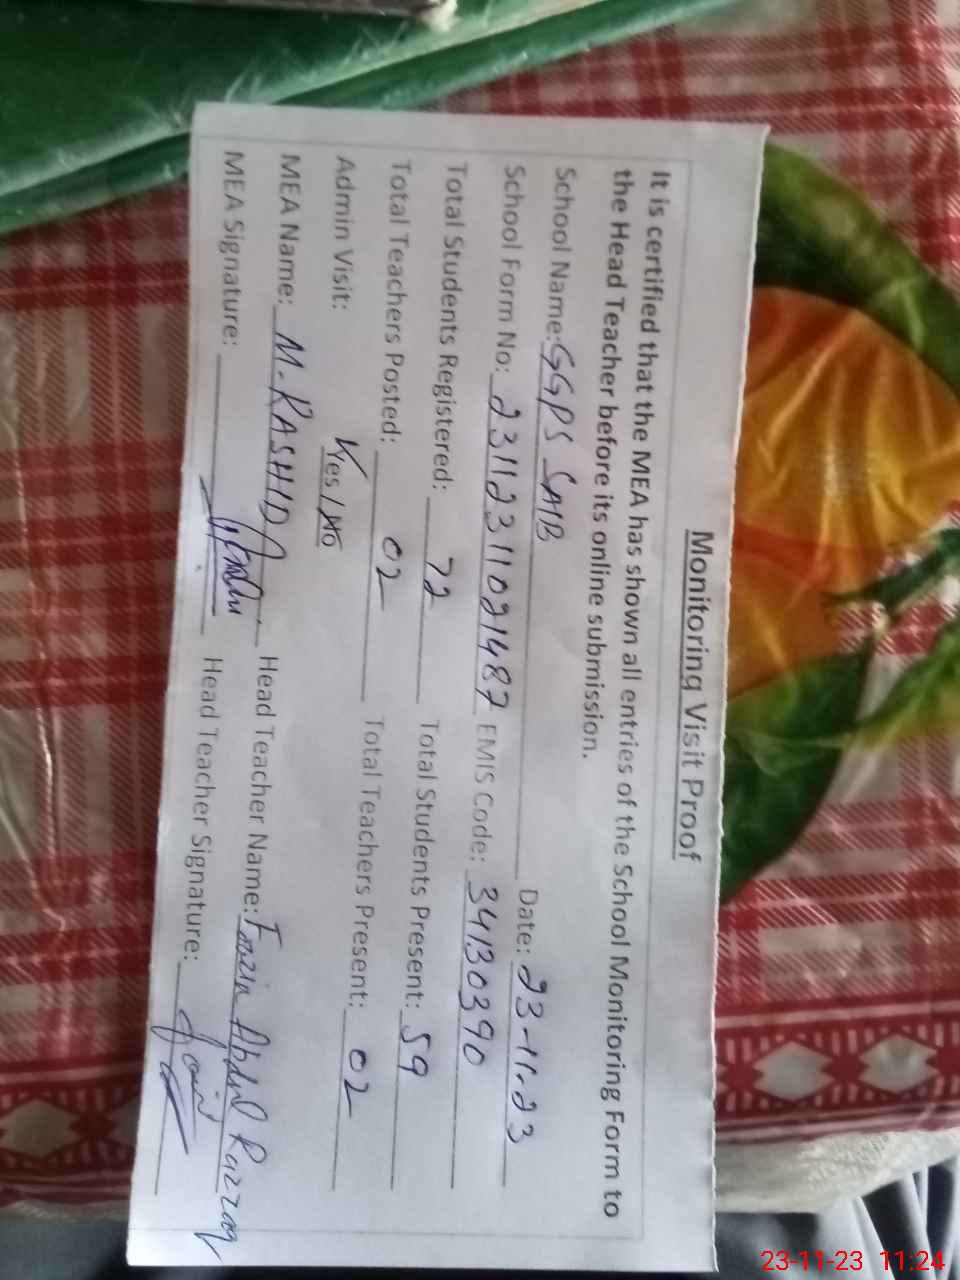 Monitoring Visit Proof
It is certified that the MEA has shown all entries of the School Monitoring Form to
the Head Teacher before its online submission.
School Name: GGPS SAIB Date: 23-11-23
School Form No: 23112311021487 EMIS Code: 34130390
Total Students Registered: 72 Total Students Present: 59
Total Teachers Posted: 02 Total Teachers Present: 02
Admin Visit: Yes / No
MEA Name: M-RASHID Head Teacher Name: Fouzia Abdul Razzaq
MEA Signature: Head Teacher Signature:
23-11-23 11:24